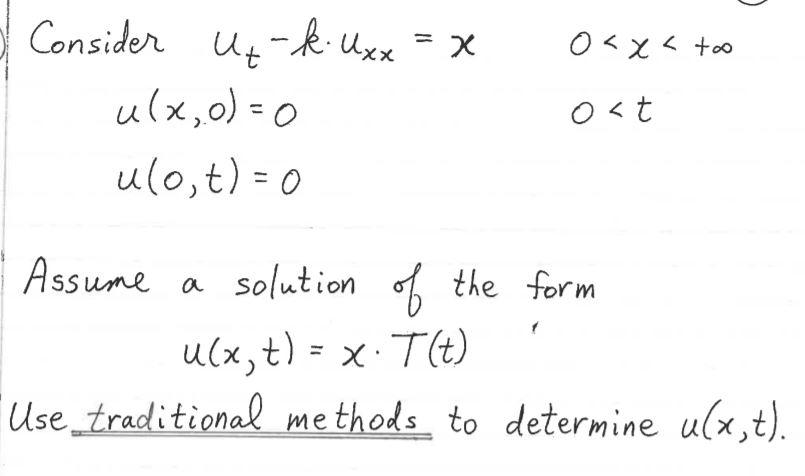 Consider u_t - k·u_xx = x 0 < x < +∞
u(x,0) = 0 0 < t
u(0,t) = 0
Assume a solution of the form
u(x,t) = x·T(t)
Use traditional methods to determine u(x,t).